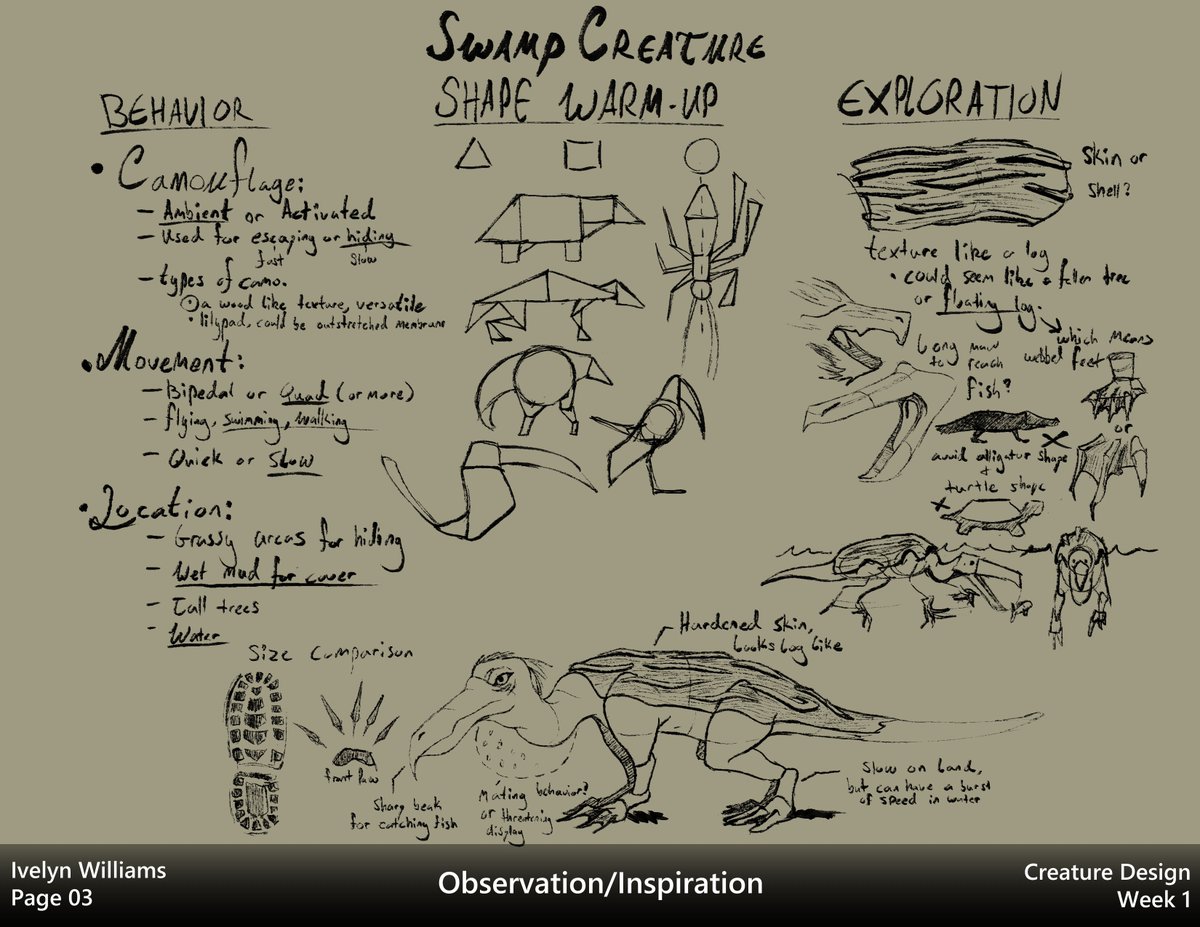 Swamp Creature
BEHAVIOR
• Camouflage:
- Ambient or Activated
- Used for escaping or hiding
fast slow
- types of camo.
• a wood like texture, versatile
• lilypad, could be outstretched membrane
• Movement:
- Bipedal or Quad (or more)
- flying, swimming, walking
- Quick or Slow
• Location:
- Grassy areas for hiding
- Wet mud for cover
- Tall trees
- Water
SHAPE WARM-UP
EXPLORATION
Skin or
Shell?
texture like a log
• could seem like a fallen tree
or floating log.
which means
webbed feet
long maw
to reach
fish?
or
avoid alligator shape
+
turtle shape
Size Comparison
front paw
Sharp beak
for catching fish
Mating behavior?
or threatening
display
Hardened skin,
looks log like
Slow on land,
but can have a burst
of speed in water
Ivelyn Williams
Page 03
Observation/Inspiration
Creature Design
Week 1